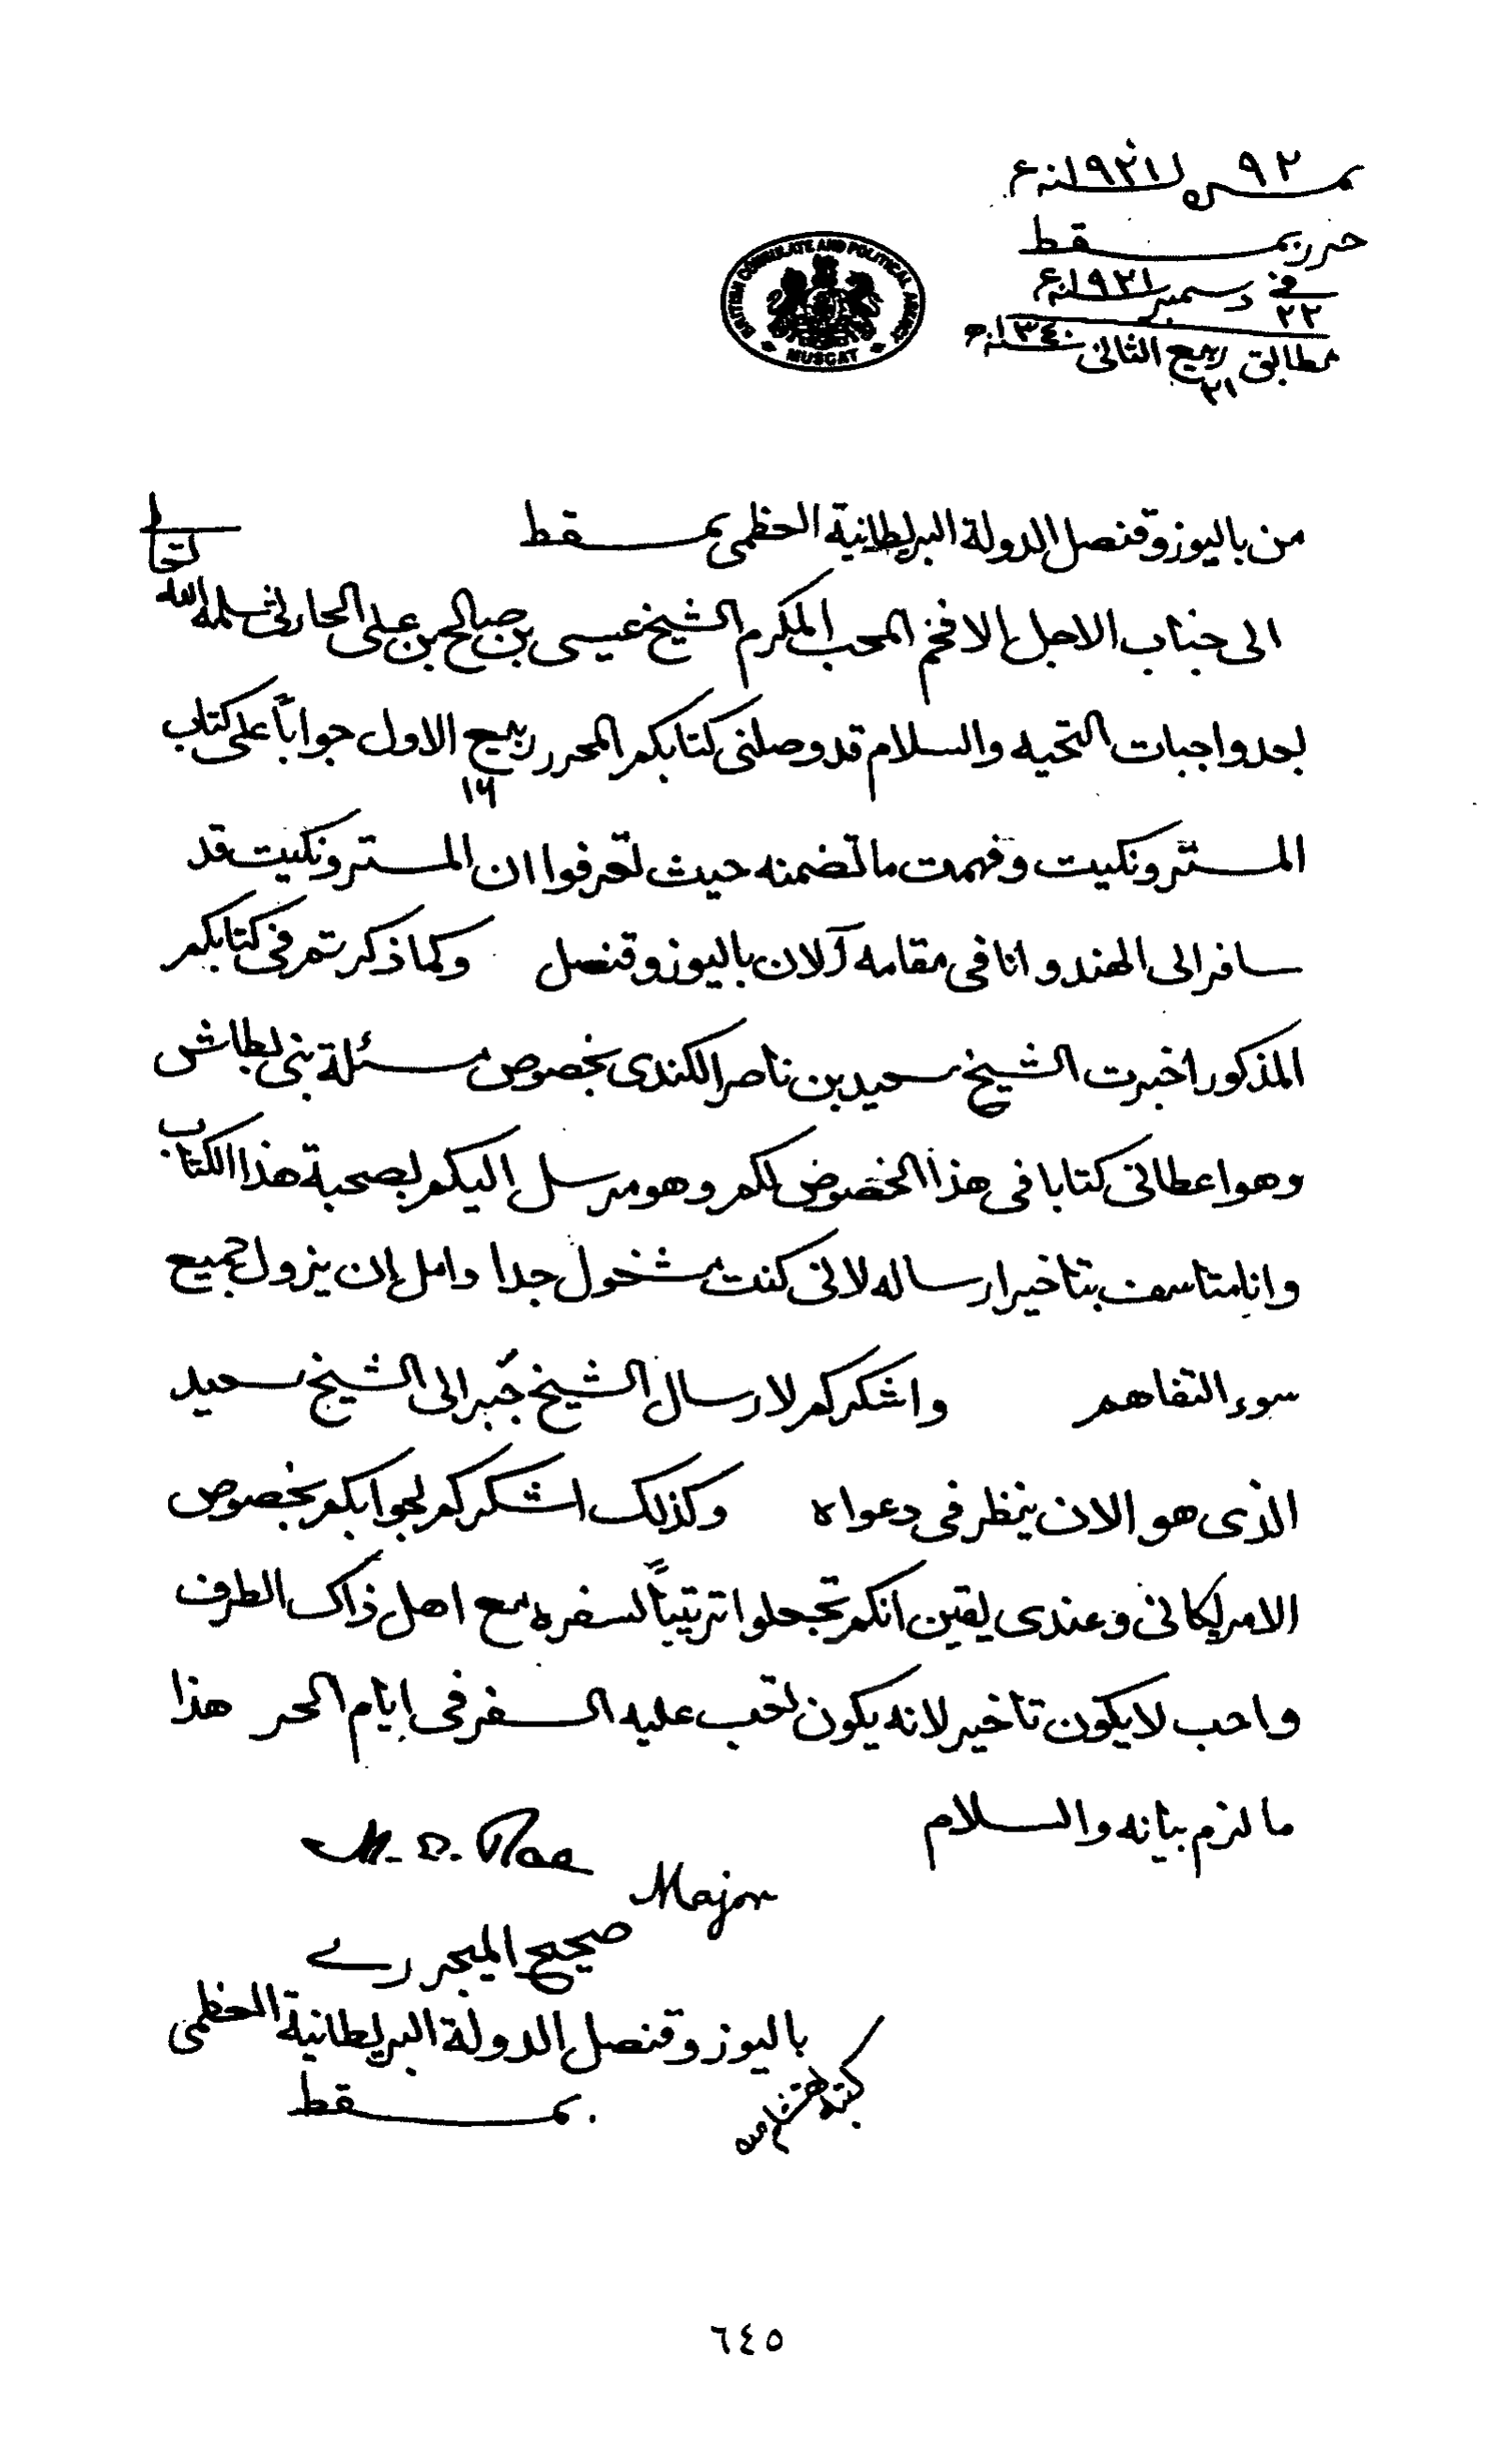 نمبر ٩٢ سنه ١٩٢١ء
حرر بمسقط
في ٢٢ دسمبر سنه ١٩٢١ء
مطابق ٢١ ربيع الثاني سنه ١٣٤٠ه
BRITISH CONSULATE AND POLITICAL AGENCY
MUSCAT
من باليوز وقنصل الدولة البريطانية العظمى بمسقط
الى جناب الاجل الافخم المحب المكرم الشيخ عيسى بن صالح بن علي الحارثي سلمه الله تعالى
بعد واجبات التحيه والسلام قد وصلني كتابكم المحرر ١٦ ربيع الاول جواباً على كتاب
المستر ونكيت وفهمت ما تضمنه حيث تعرفوا ان المستر ونكيت قد
سافر الى الهند وانا في مقامه آلان باليوز وقنصل وكما ذكرتم في كتابكم
المذكور اخبرت الشيخ سعيد بن ناصر الكندى بخصوص مسئلة بني بطاش
وهو اعطاني كتابا في هذا الخصوص لكم وهو مرسل اليكم بصحبة هذا الكتاب
وانا متاسف بتاخير ارساله لاني كنت مشغول جدا وامل ان يزول جميع
سوء التفاهم واشكركم لارسال الشيخ جبر الى الشيخ سعيد
الذى هو الان ينظر في دعواه وكذلك اشكركم لجوابكم بخصوص
الامريكاني وعندى يقين انكم تجعلوا ترتيباً لسفره مع اهل ذاك الطرف
واحب لا يكون تاخير لانه يكون تعب عليه السفر في ايام الحر هذا
ما لزم بيانه والسلام
M. E. Rae
Major
صحيح الميجر رے
باليوز وقنصل الدولة البريطانية العظمى
بمسقط
٦٤٥